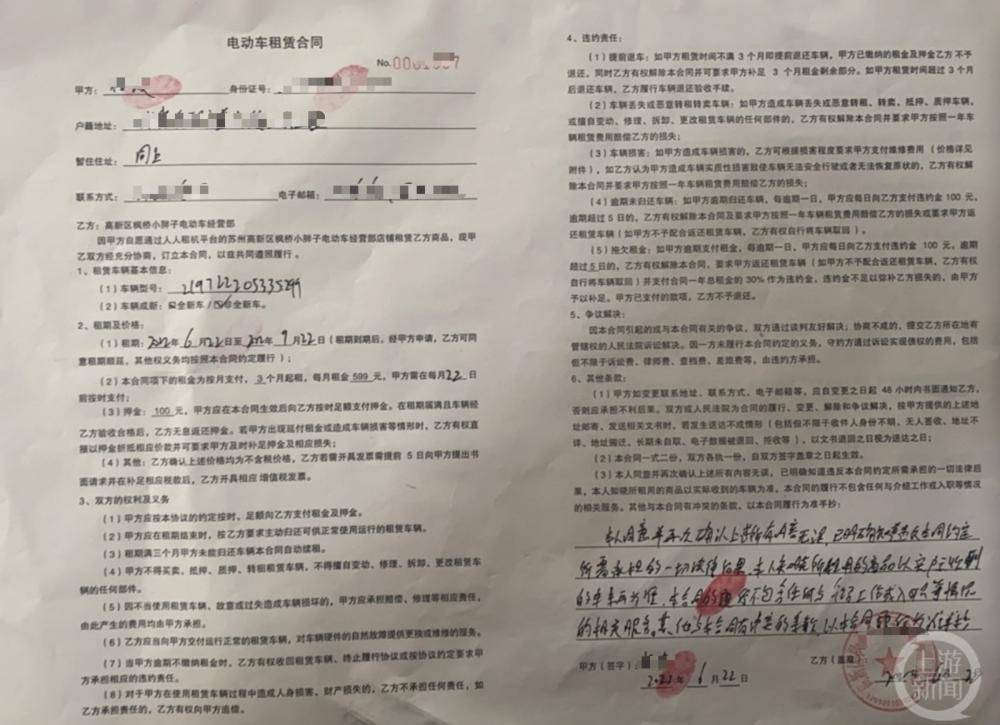 电动车租赁合同
No.
甲方：
身份证号：
户籍地址：
暂住住址： 同上
联系方式：
电子邮箱：
乙方：高新区枫桥小胖子电动车经营部
因甲方自愿通过人人租机平台的苏州高新区枫桥小胖子电动车经营部店铺租赁乙方商品，现甲
乙双方经充分协商，订立本合同，以兹共同遵照履行。
1、租赁车辆基本信息：
（1）车辆型号：
（2）车辆成新：全新车／非全新车。
2、租期及价格：
（1）租期：2022年6月22日至2022年9月22日（租期到期后，经甲方申请，乙方可同
意租期顺延，其他权义务均按照本合同约定履行）；
（2）本合同项下的租金为按月支付，3个月起租，每月租金 599 元，甲方需在每月22日
前按时支付；
（3）押金：100 元，甲方应在本合同生效后向乙方按时足额支付押金。在租期届满且车辆经
乙方验收合格后，乙方无息返还押金。若甲方出现延付租金或造成车辆损害等情形时，乙方有权直
接以押金折抵相应价款并可要求甲方及时补足押金及相应损失；
（4）其他：乙方确认上述价格均为不含税价格，乙方若需开具发票需提前 5 日向甲方提出书
面请求并在补足相应税款后，乙方开具相应 增值税发票。
3、双方的权利及义务
（1）甲方应按本协议的约定按时，足额向乙方支付租金及押金。
（2）甲方应在租期结束时，按乙方要求主动归还可供正常使用运行的租赁车辆。
（3）租期满三个月甲方未能归还车辆本合同自动续租。
（4）甲方不得买卖、抵押、质押、转租租赁车辆，不得擅自变动、修理、拆卸、更改租赁车
辆的任何部件。
（5）因不当使用租赁车辆，故意或过失造成车辆损坏的，甲方应承担赔偿、修理等相应责任，
由此产生的费用均由甲方承担。
（6）乙方应当向甲方交付运行正常的租赁车辆，对车辆硬件的自然故障提供更换或维修的服务。
（7）当甲方逾期不缴纳租金时，乙方有权收回租赁车辆、终止履行协议或按协议约定要求甲
方承担相应的违约责任。
（8）对于甲方在使用租赁车辆过程中造成人身损害、财产损失的，乙方不承担任何责任，如
乙方承担责任的，乙方有权向甲方追偿。
4、违约责任：
（1）提前退车：如甲方租赁时间不满 3 个月即提前退还车辆，甲方已缴纳的租金及押金乙方不予
退还，同时乙方有权解除本合同并可要求甲方补足 3 个月租金剩余部分。如甲方租赁时间超过 3 个月
后退还车辆，乙方履行车辆退还验收手续。
（2）车辆丢失或恶意转租转卖车辆：如甲方造成车辆丢失或恶意转租、转卖、抵押、质押车辆，
或擅自变动、修理、拆卸、更改租赁车辆的任何部件的，乙方有权解除本合同并要求甲方按照一年车
辆租赁费用赔偿乙方的损失；
（3）车辆损害：如甲方造成车辆损害的，乙方可根据损害程度要求甲方支付维修费用（价格详见
附件），如乙方认为甲方造成车辆实质性损害致使车辆无法安全行驶或者无法恢复原状的，乙方有权解
除本合同并要求甲方按照一年车辆租赁费用赔偿乙方的损失；
（4）逾期未归还车辆：如甲方逾期归还车辆，每逾期一日，甲方应每日向乙方支付违约金 100 元，
逾期超过 5 日的，乙方有权解除本合同及要求甲方按照一年车辆租赁费用赔偿乙方的损失或要求甲方返
还租赁车辆（如甲方不予配合返还租赁车辆，乙方有权自行将车辆取回）。
（5）拖欠租金：如甲方逾期支付租金，每逾期一日，甲方应每日向乙方支付违约金 100 元，逾期
超过 5 日的，乙方有权解除本合同，要求甲方返还租赁车辆（如甲方不予配合返还租赁车辆，乙方有权
自行将车辆取回）并支付合同一年总租金的 30% 作为违约金，违约金不足以弥补乙方损失的，由甲方
予以补足。甲方已支付的款项，乙方不予退还。
5、争议解决：
因本合同引起的或与本合同有关的争议，双方通过谈判友好解决；协商不成的，提交乙方所在地有
管辖权的人民法院诉讼解决。因一方未履行本合同约定的义务，守约方通过诉讼实现债权的费用，包括
但不限于诉讼费、律师费、查档费、差旅费等，由违约方承担。
6、其他条款：
（1）甲方如变更联系地址、联系方式、电子邮箱等，应自变更之日起 48 小时内书面通知乙方，
否则应承担不利后果。双方或人民法院为合同的履行、变更、解除和争议解决，按甲方提供的上述地
址邮寄、发送相关文书时，若发生送达不成情形（包括但不限于收件人身份不明、无人签收、地址不
详、地址搬迁、长期未自取、电子数据被退回、拒收等），以文书退回之日视为送达之日；
（2）本合同一式二份，双方各执一份，自双方签字盖章之日起生效。
（3）本人同意并再次确认上述所有内容无误，已明确知道违反本合同约定所需承担的一切法律后
果，本人知晓所租用的商品以实际收到的车辆为准，本合同的履行不包含任何与介绍工作或入职等情况
的相关服务。其他与本合同有冲突的条款，以本合同履行为准手抄：
本人同意并再次确认上述所有内容无误，已明确知道违反本合同约定
所需承担的一切法律后果，本人知晓所租用的商品以实际收到
的车辆为准，本合同的履行不包含任何与介绍工作或入职等情况
的相关服务。其他与本合同有冲突的条款，以本合同履行为准
甲方（签字）：
乙方（盖章）：
2022年6月22日
上游新闻